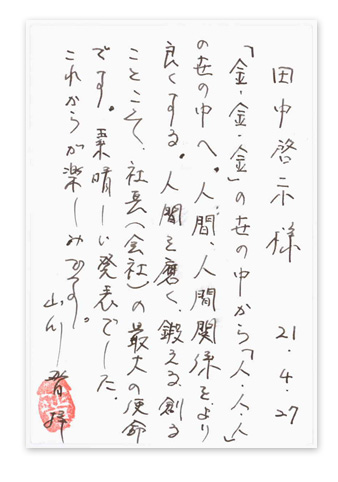 田中啓示様
21.4.27
「金・金・金」の世の中から「人・人・人」
の世の中へ。人間、人間関係をより
良くする。人間を磨く、鍛える、創る
ことこそ、社長(会社)の最大の使命
です。素晴しい発表でした。
これからが楽しみです。
拝